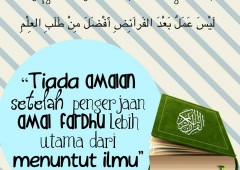 لَيْسَ عَمَلٌ بَعْدَ الْفَرَائِضِ أَفْضَلَ مِنْ طَلَبِ الْعِلْمِ
“Tiada amalan
setelah pengerjaan
amal fardhu lebih
utama dari
menuntut ilmu”